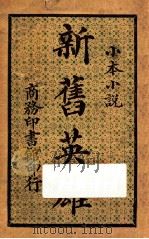 小本小説
新舊英雄
商務印書
行